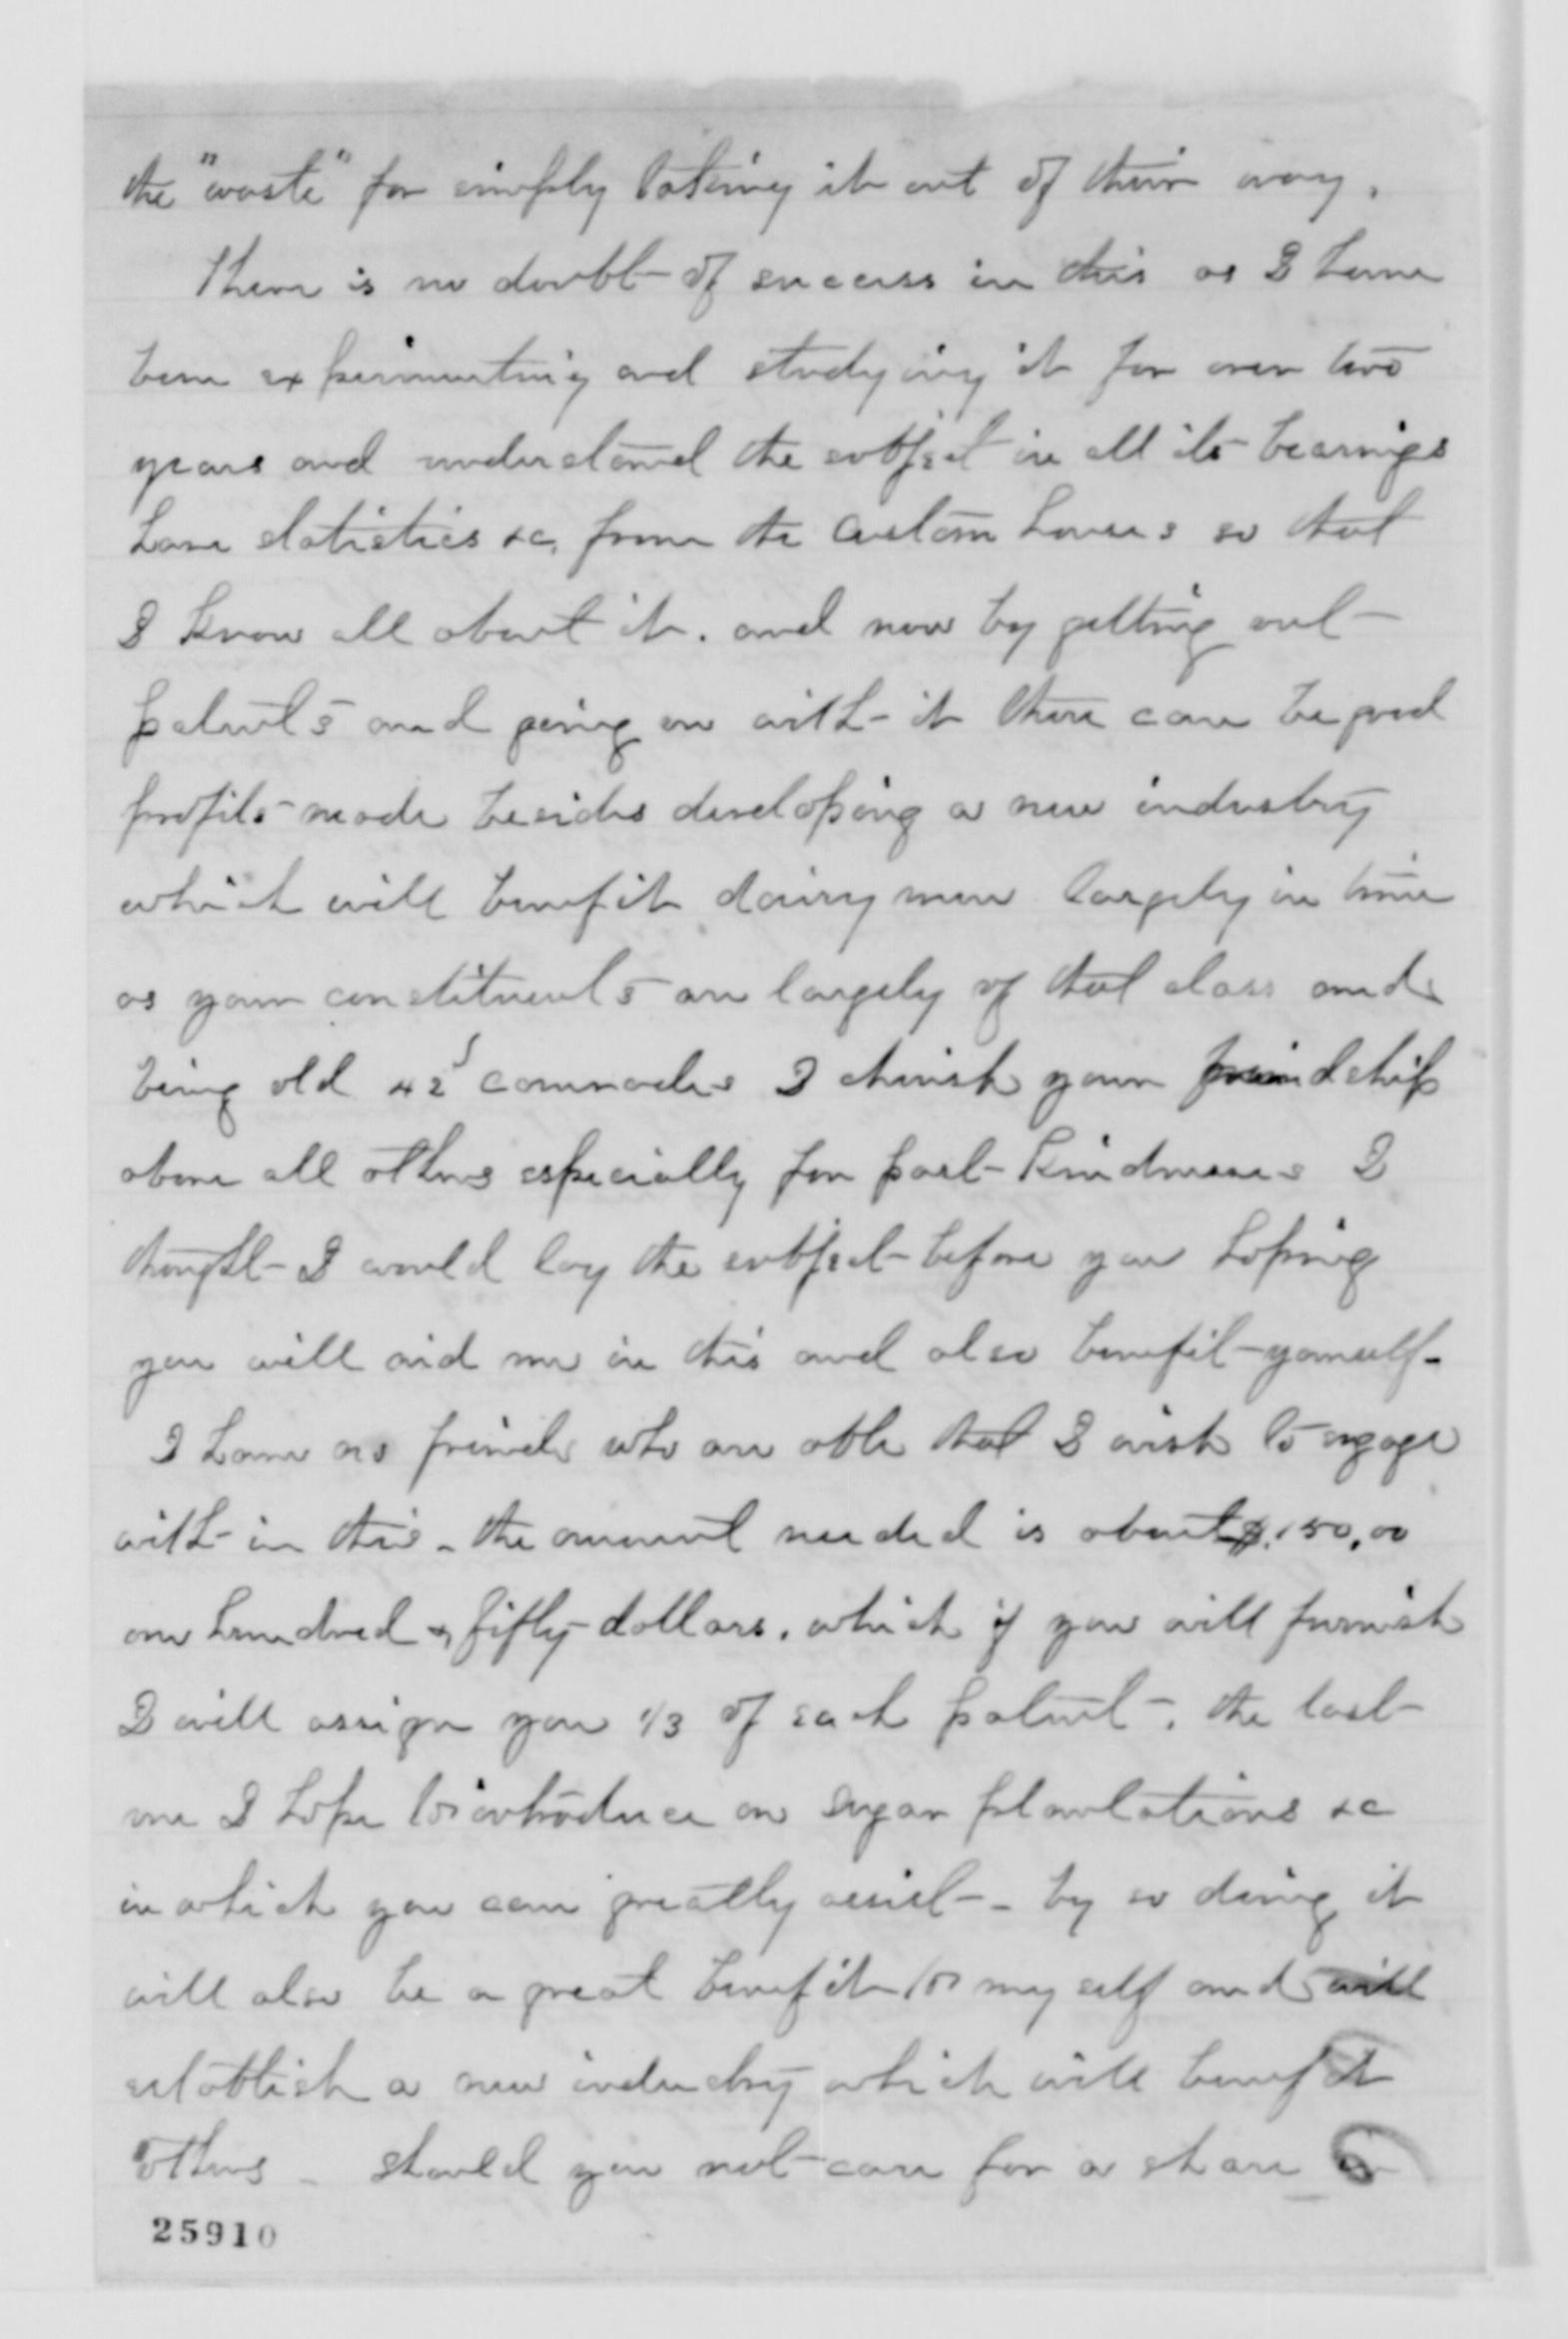 the "waste" for simply taking it out of their way.
There is no doubt of success in this as I have
been experimenting and studying it for over two
years and understand the subject in all its bearings
have statistics &c. from the Custom houses so that
I know all about it. and now by getting out
patents and going on with it there can be good
profits made besides developing a new industry
which will benefit dairy men largely in time
as your constituents are largely of that class and
being old 42s comrades I cherish your friendship
above all others especially for past kindnesses I
thought I would lay the subject before you hoping
you will aid me in this and also benefit yourself-
I have no friends who are able that I wish to engage
with in this - the amount needed is about $.150.00
one hundred & fifty dollars. which if you will furnish
I will assign you 1/3 of each patent. the last
one I hope to introduce on sugar plantations &c
in which you can greatly assist - by so doing it
will also be a great benefit to my self and will
establish a new industry which will benefit
others - should you not care for a share in
25910